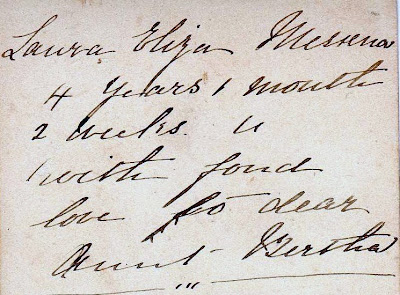 Laura Eliza Messena
4 years 1 month
2 weeks. "
with fond
love to dear
Aunt Bertha
"